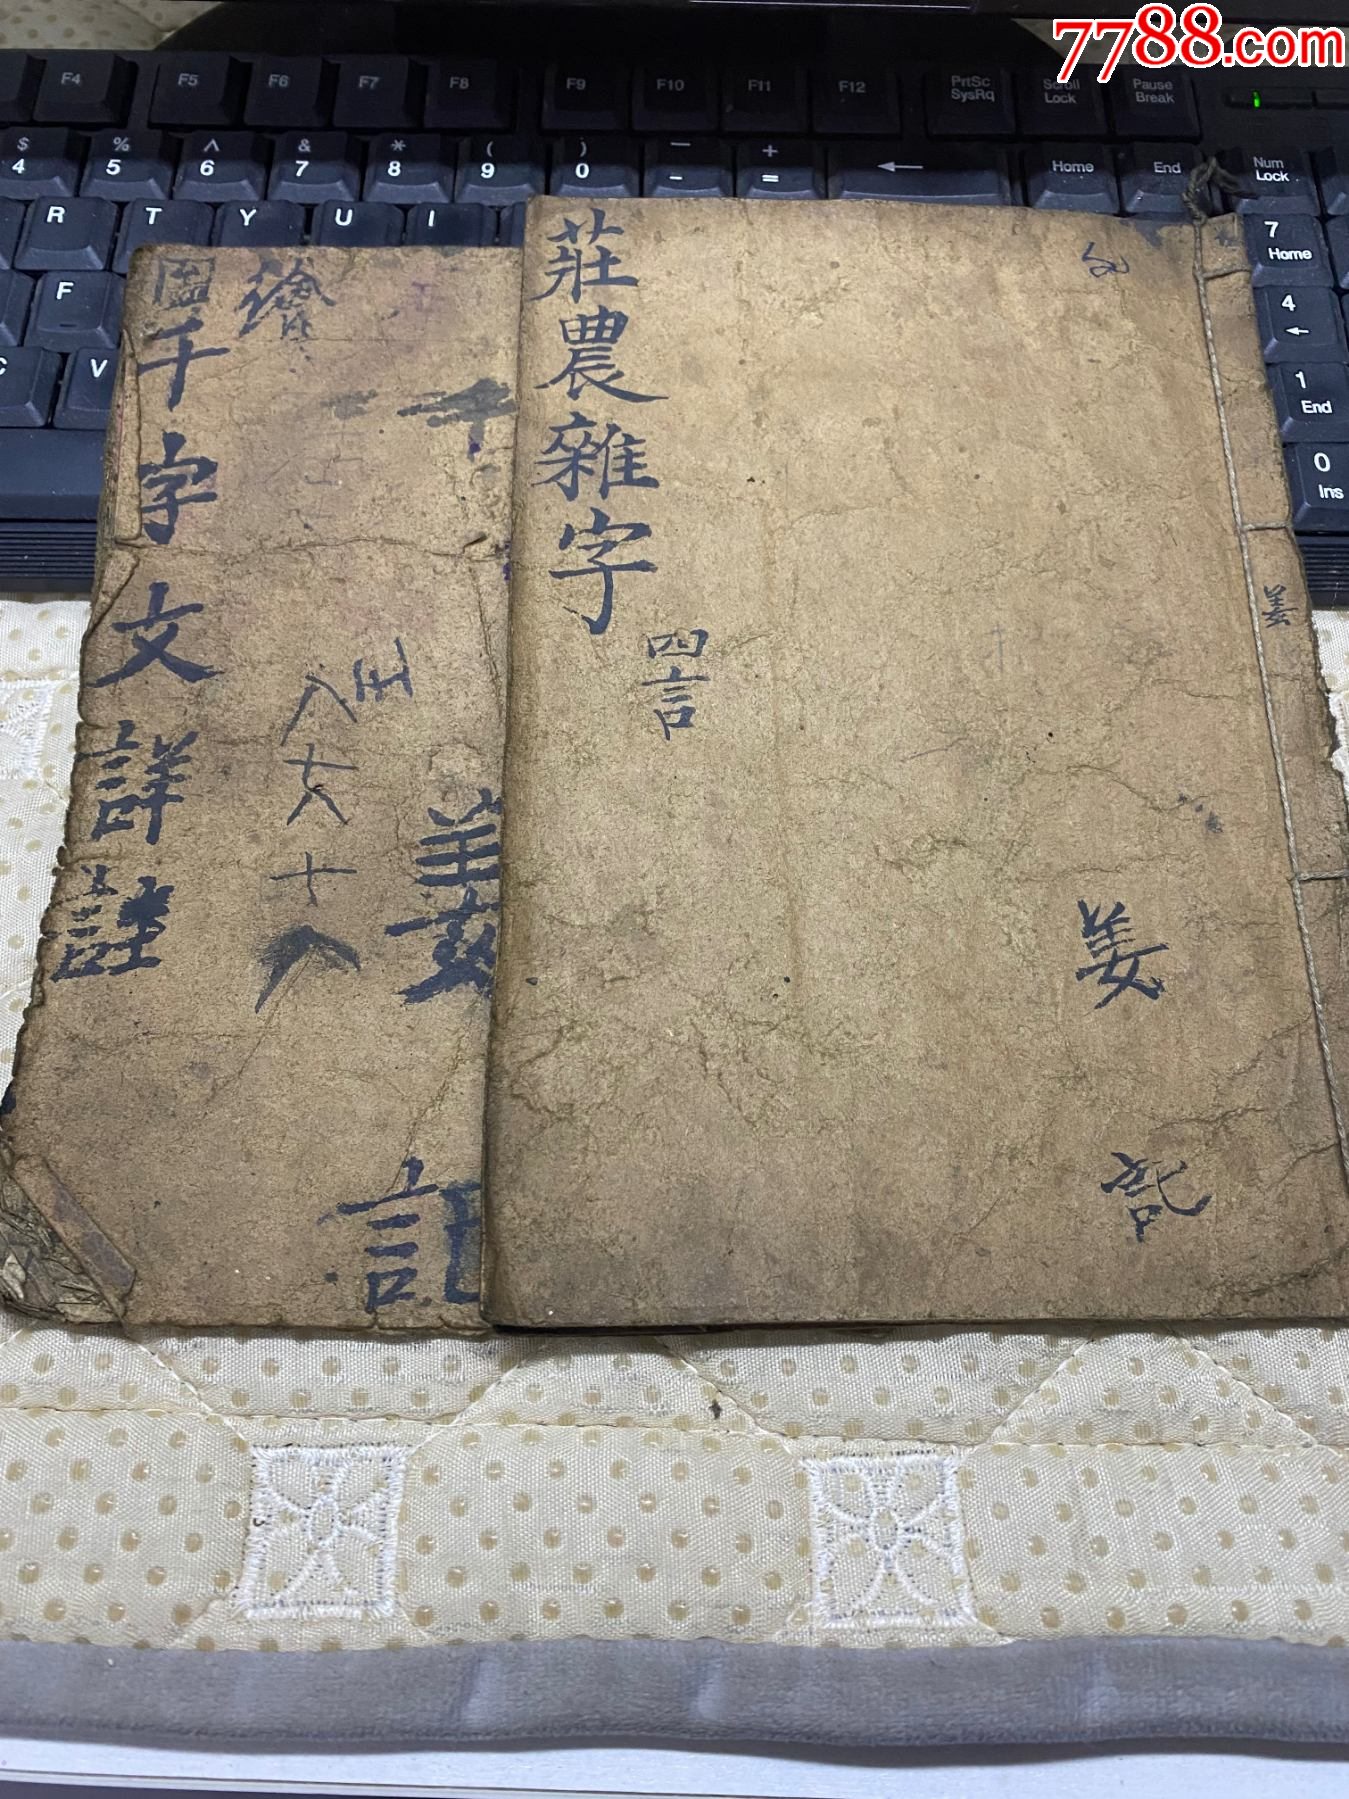 7788.com
F4 F5 F6 F7 F8 F9 F10 F11 F12 PrtSc SysRq Scroll Lock Pause Break
$ 4 % 5 ^ 6 & 7 * 8 ( 9 ) 0 — - + = ← Home End Num Lock
R T Y U I 7 Home
F 4 ←
C V 1 End
0 Ins
莊農雜字
四言
姜
記
姜
繪
圖千字文詳註
王
人大十
姜
記